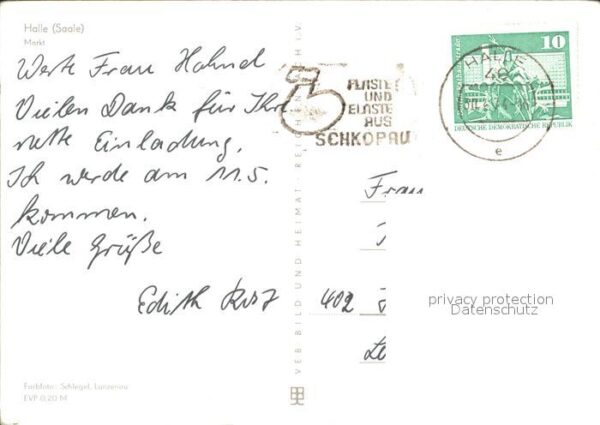 Halle (Saale)
Markt
Werte Frau Hahnel
Vielen Dank für Ihre
nette Einladung.
Ich werde am 11.5.
kommen.
Viele Grüße
Edith
Farbfoto: Schlegel, Lunzenau
EVP 0,20 M
VEB BILD UND HEIMAT REICHENBACH I. V.
PLASTE
UND
ELASTE
AUS
SCHKOPAU
HALLE
e
10
DEUTSCHE DEMOKRATISCHE REPUBLIK
Frau
402
privacy protection
Datenschutz